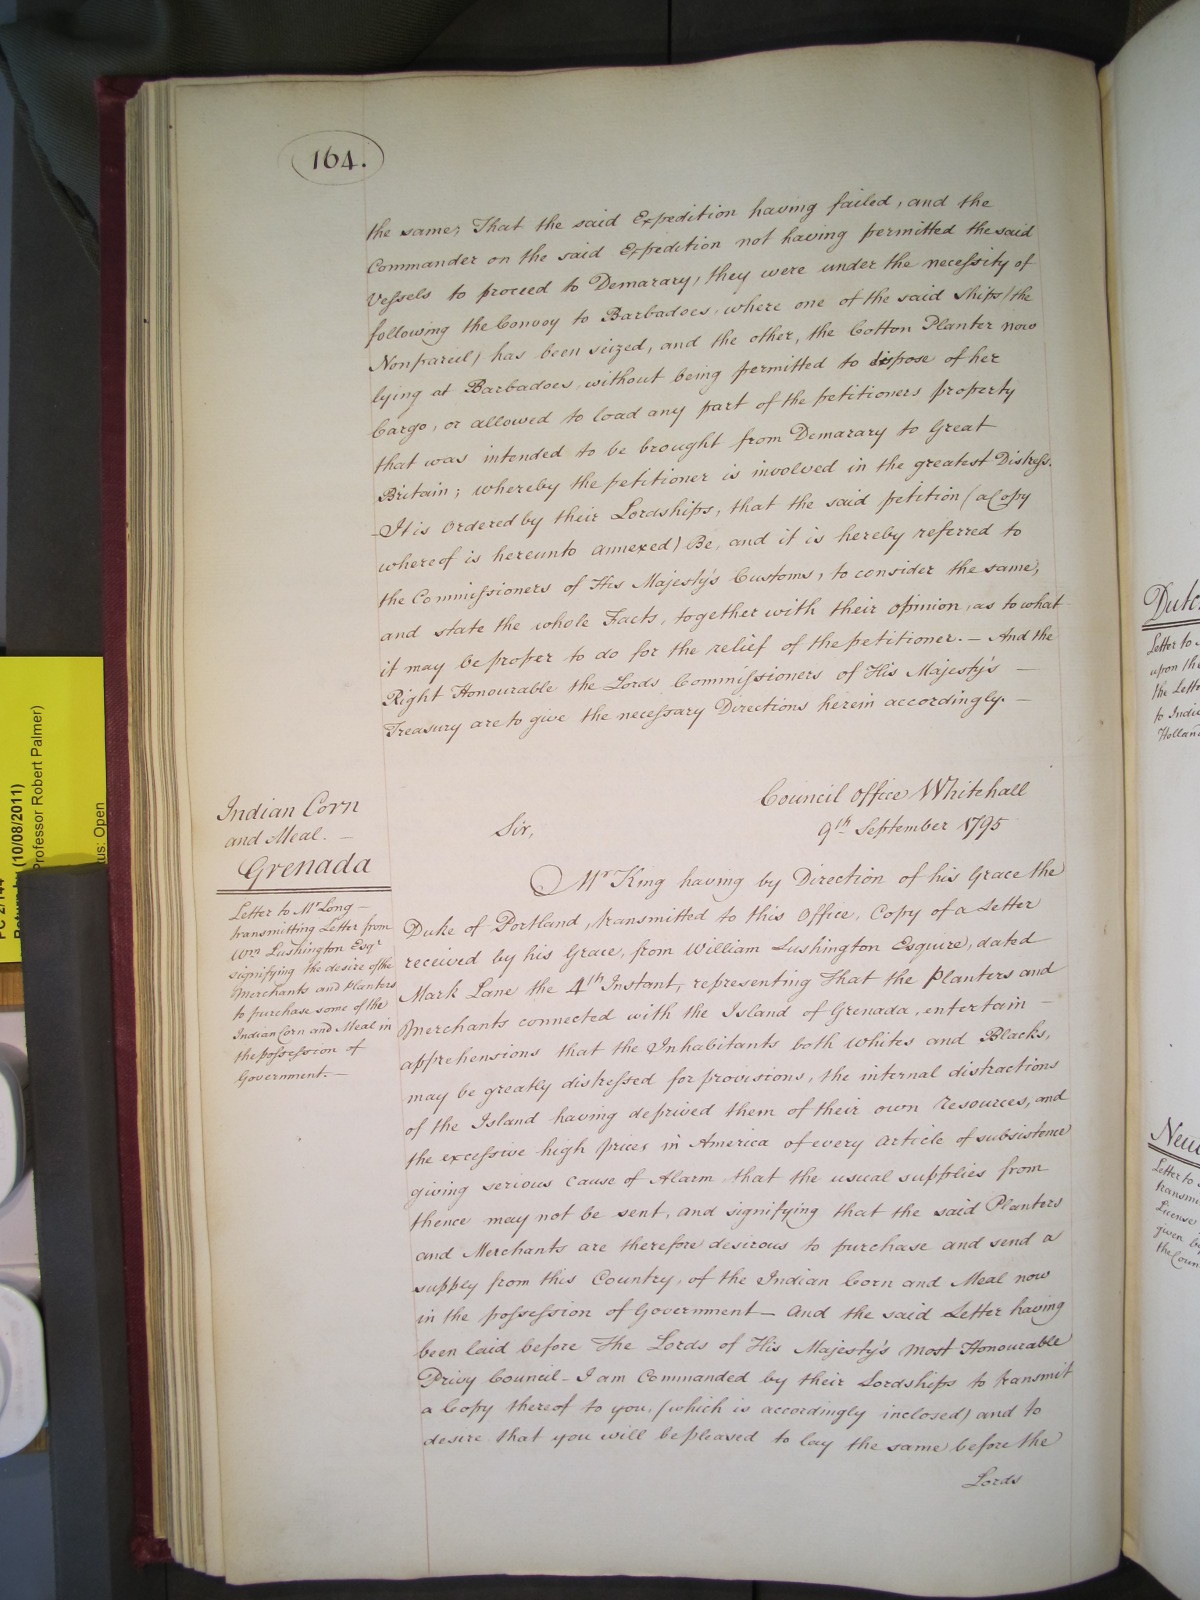 164.
the same, That the said Expedition having failed, and the
Commander on the said Expedition not having permitted the said
Vessels to proceed to Demarary, they were under the necessity of
following the Convoy to Barbadoes, where one of the said Ships (the
Nonpareil) has been seized, and the other, the Cotton Planter now
lying at Barbadoes, without being permitted to dispose of her
Cargo, or allowed to load any part of the petitioners property
that was intended to be brought from Demarary to Great
Britain; whereby the petitioner is involved in the greatest Distress.
- It is Ordered by their Lordships, that the said petition (a Copy
whereof is hereunto annexed) Be, and it is hereby referred to
the Commissioners of His Majesty's Customs, to consider the same,
and state the whole Facts, together with their opinion, as to what
it may be proper to do for the relief of the petitioner. — And the
Right Honourable the Lords Commissioners of His Majesty's —
Treasury are to give the necessary Directions herein accordingly. —
Indian Corn
and Meal. —
Grenada
Letter to Mr Long —
transmitting Letter from
Wm Lushington Esqr
signifying the desire of the
Merchants and Planters
to purchase some of the
Indian Corn and Meal in
the possession of
Government. —
Council Office Whitehall
9th September 1795
Sir,
Mr King having by Direction of his Grace the
Duke of Portland, transmitted to this Office, Copy of a Letter
received by his Grace, from William Lushington Esquire, dated
Mark Lane the 4th Instant, representing That the Planters and
Merchants connected with the Island of Grenada, entertain —
apprehensions that the Inhabitants both Whites and Blacks,
may be greatly distressed for provisions, the internal distractions
of the Island having deprived them of their own resources, and
the excessive high prices in America of every Article of subsistence
giving serious cause of Alarm that the usual supplies from
thence may not be sent, and signifying that the said Planters
and Merchants are therefore desirous to purchase and send a
supply from this Country, of the Indian Corn and Meal now
in the possession of Government — And the said Letter having
been laid before The Lords of His Majesty's Most Honourable
Privy Council - I am Commanded by their Lordships to transmit
a Copy thereof to you, (which is accordingly inclosed) and to
desire that you will be pleased to lay the same before the
Lords
Return by (10/08/2011)
Professor Robert Palmer)
Open
Letter to
upon the
to Indi
Letter to
given by